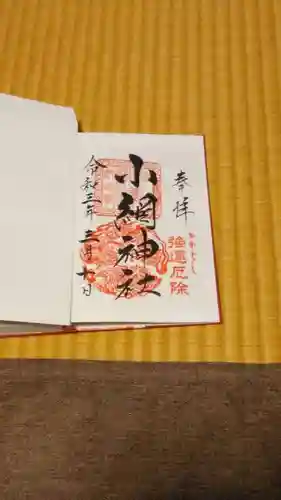 奉拝
強運厄除
小網神社
令和三年三月七日